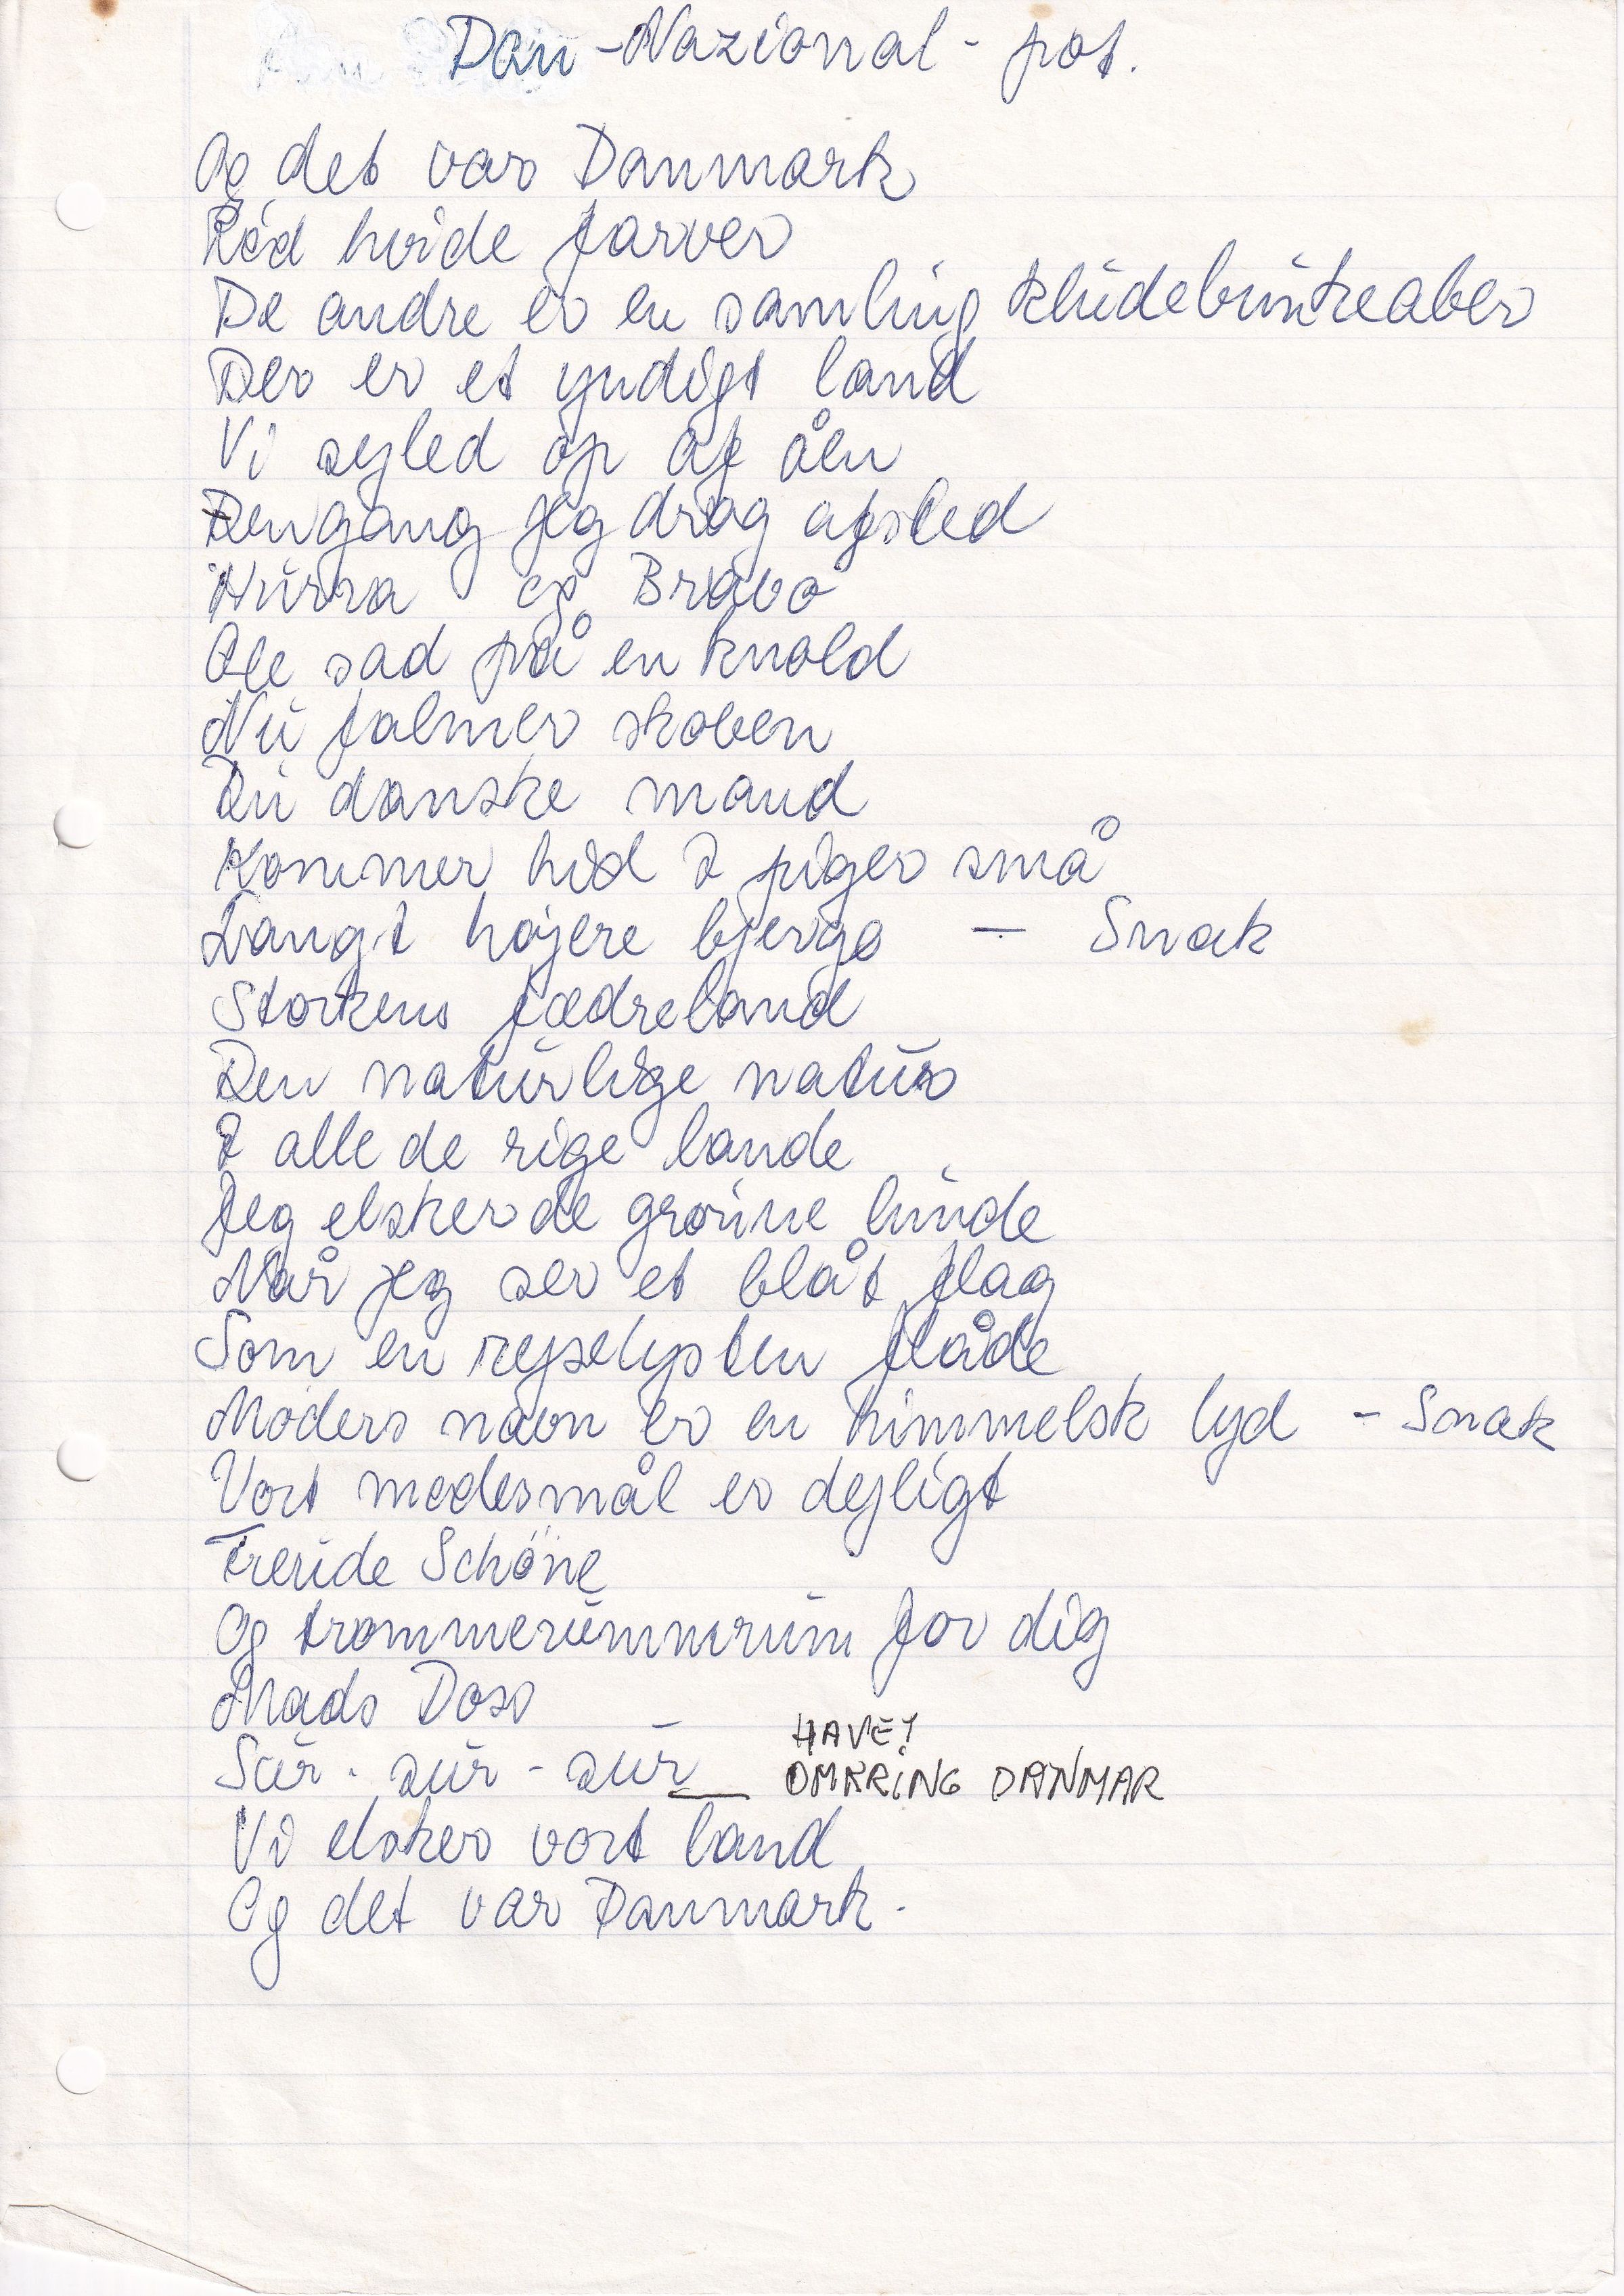 Dan - Nazional - pot.
Og det var Danmark
Rød hvide farver
De andre er en samling kludebunkeaber
Der er et yndigt land
Vi sejled op af åen
Dengang jeg drog afsted
Hurra og Bravo
Ole sad på en knold
Nu falmer skoven
Du danske mand
Kommer hid I piger små
Langt højere bjerge - Snak
Storkens fædreland
Den naturlige natur
I alle de rige lande
Jeg elsker de grønne lunde
Når jeg ser et blåt flag
Som en rejselysten flåde
Moders navn er en himmelsk lyd - Snak
Vort modersmål er dejligt
Freude Schöne
Og trommerummerum for dig
Mads Doss
HAVET
Sur - sur - sur OMKRING DANMAR
Vi elsker vort land
Og det var Danmark.